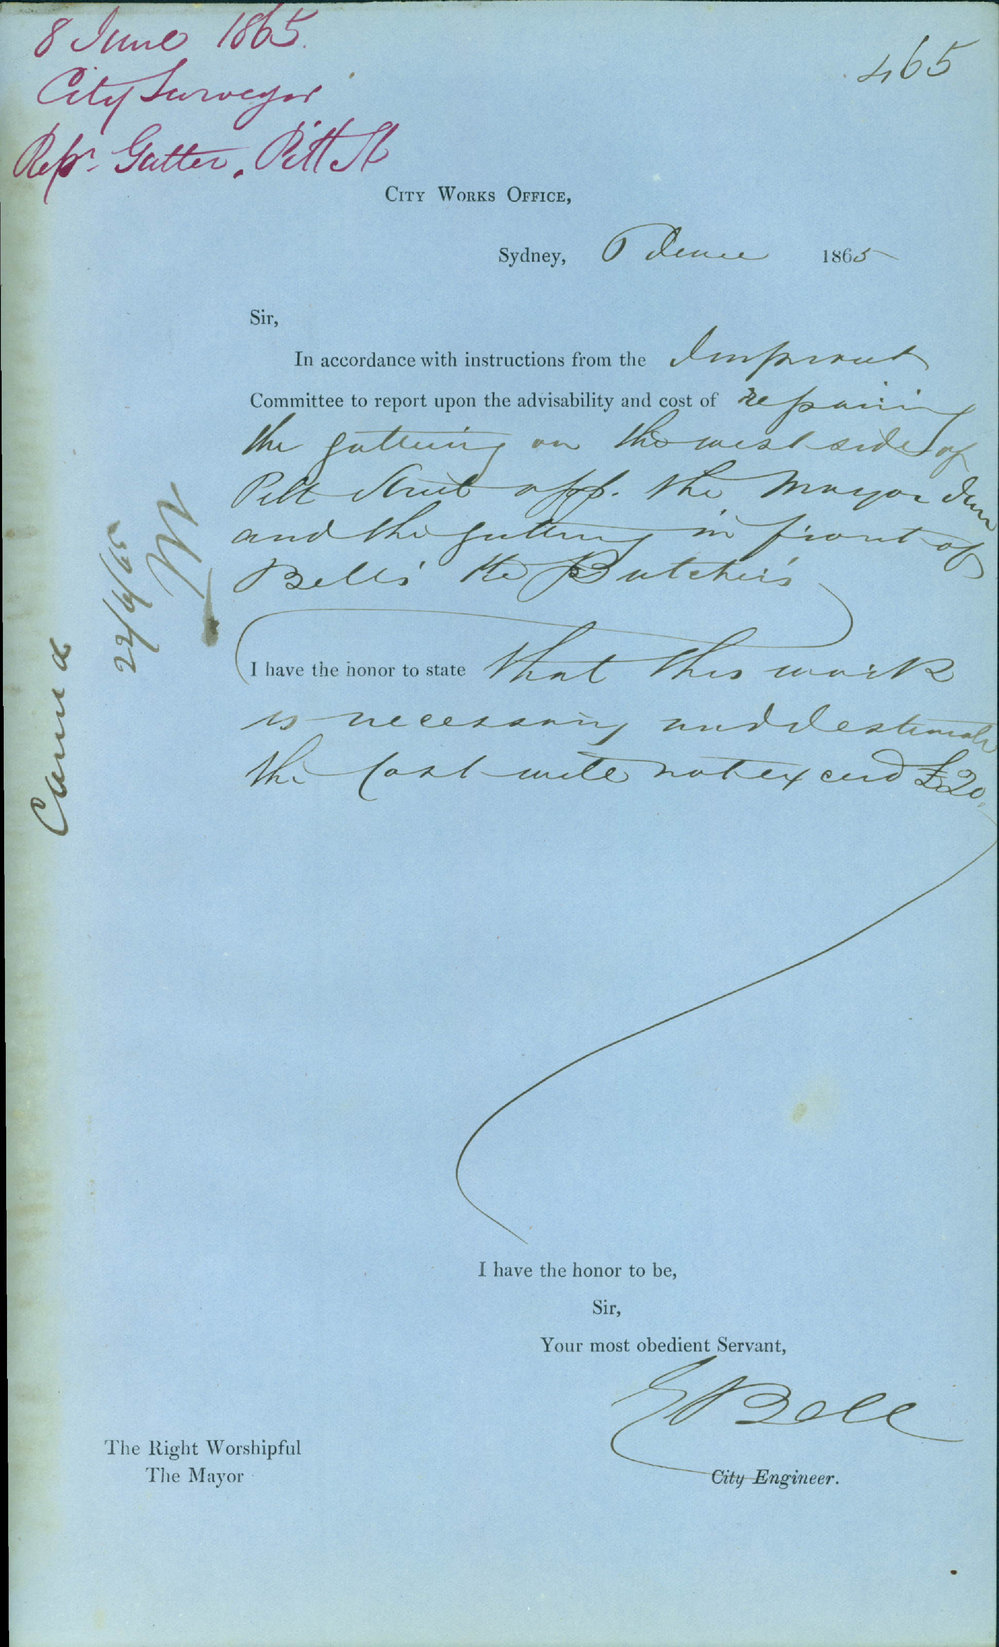 8 June 1865.
City Surveyor
Repr. Gutter, Pitt St
465
CITY WORKS OFFICE,
Sydney, 8 June 1865
Sir,
In accordance with instructions from the Improvt
Committee to report upon the advisability and cost of repairing
the guttering on the west side of
Pitt Street opp. the Mayor Inn
and the guttering in front of
Bell's the Butcher's
I have the honor to state that this work
is necessary and I estimate
the cost will not exceed £20.
22/6/65
I have the honor to be,
Sir,
Your most obedient Servant,
E Bell
City Engineer.
The Right Worshipful
The Mayor